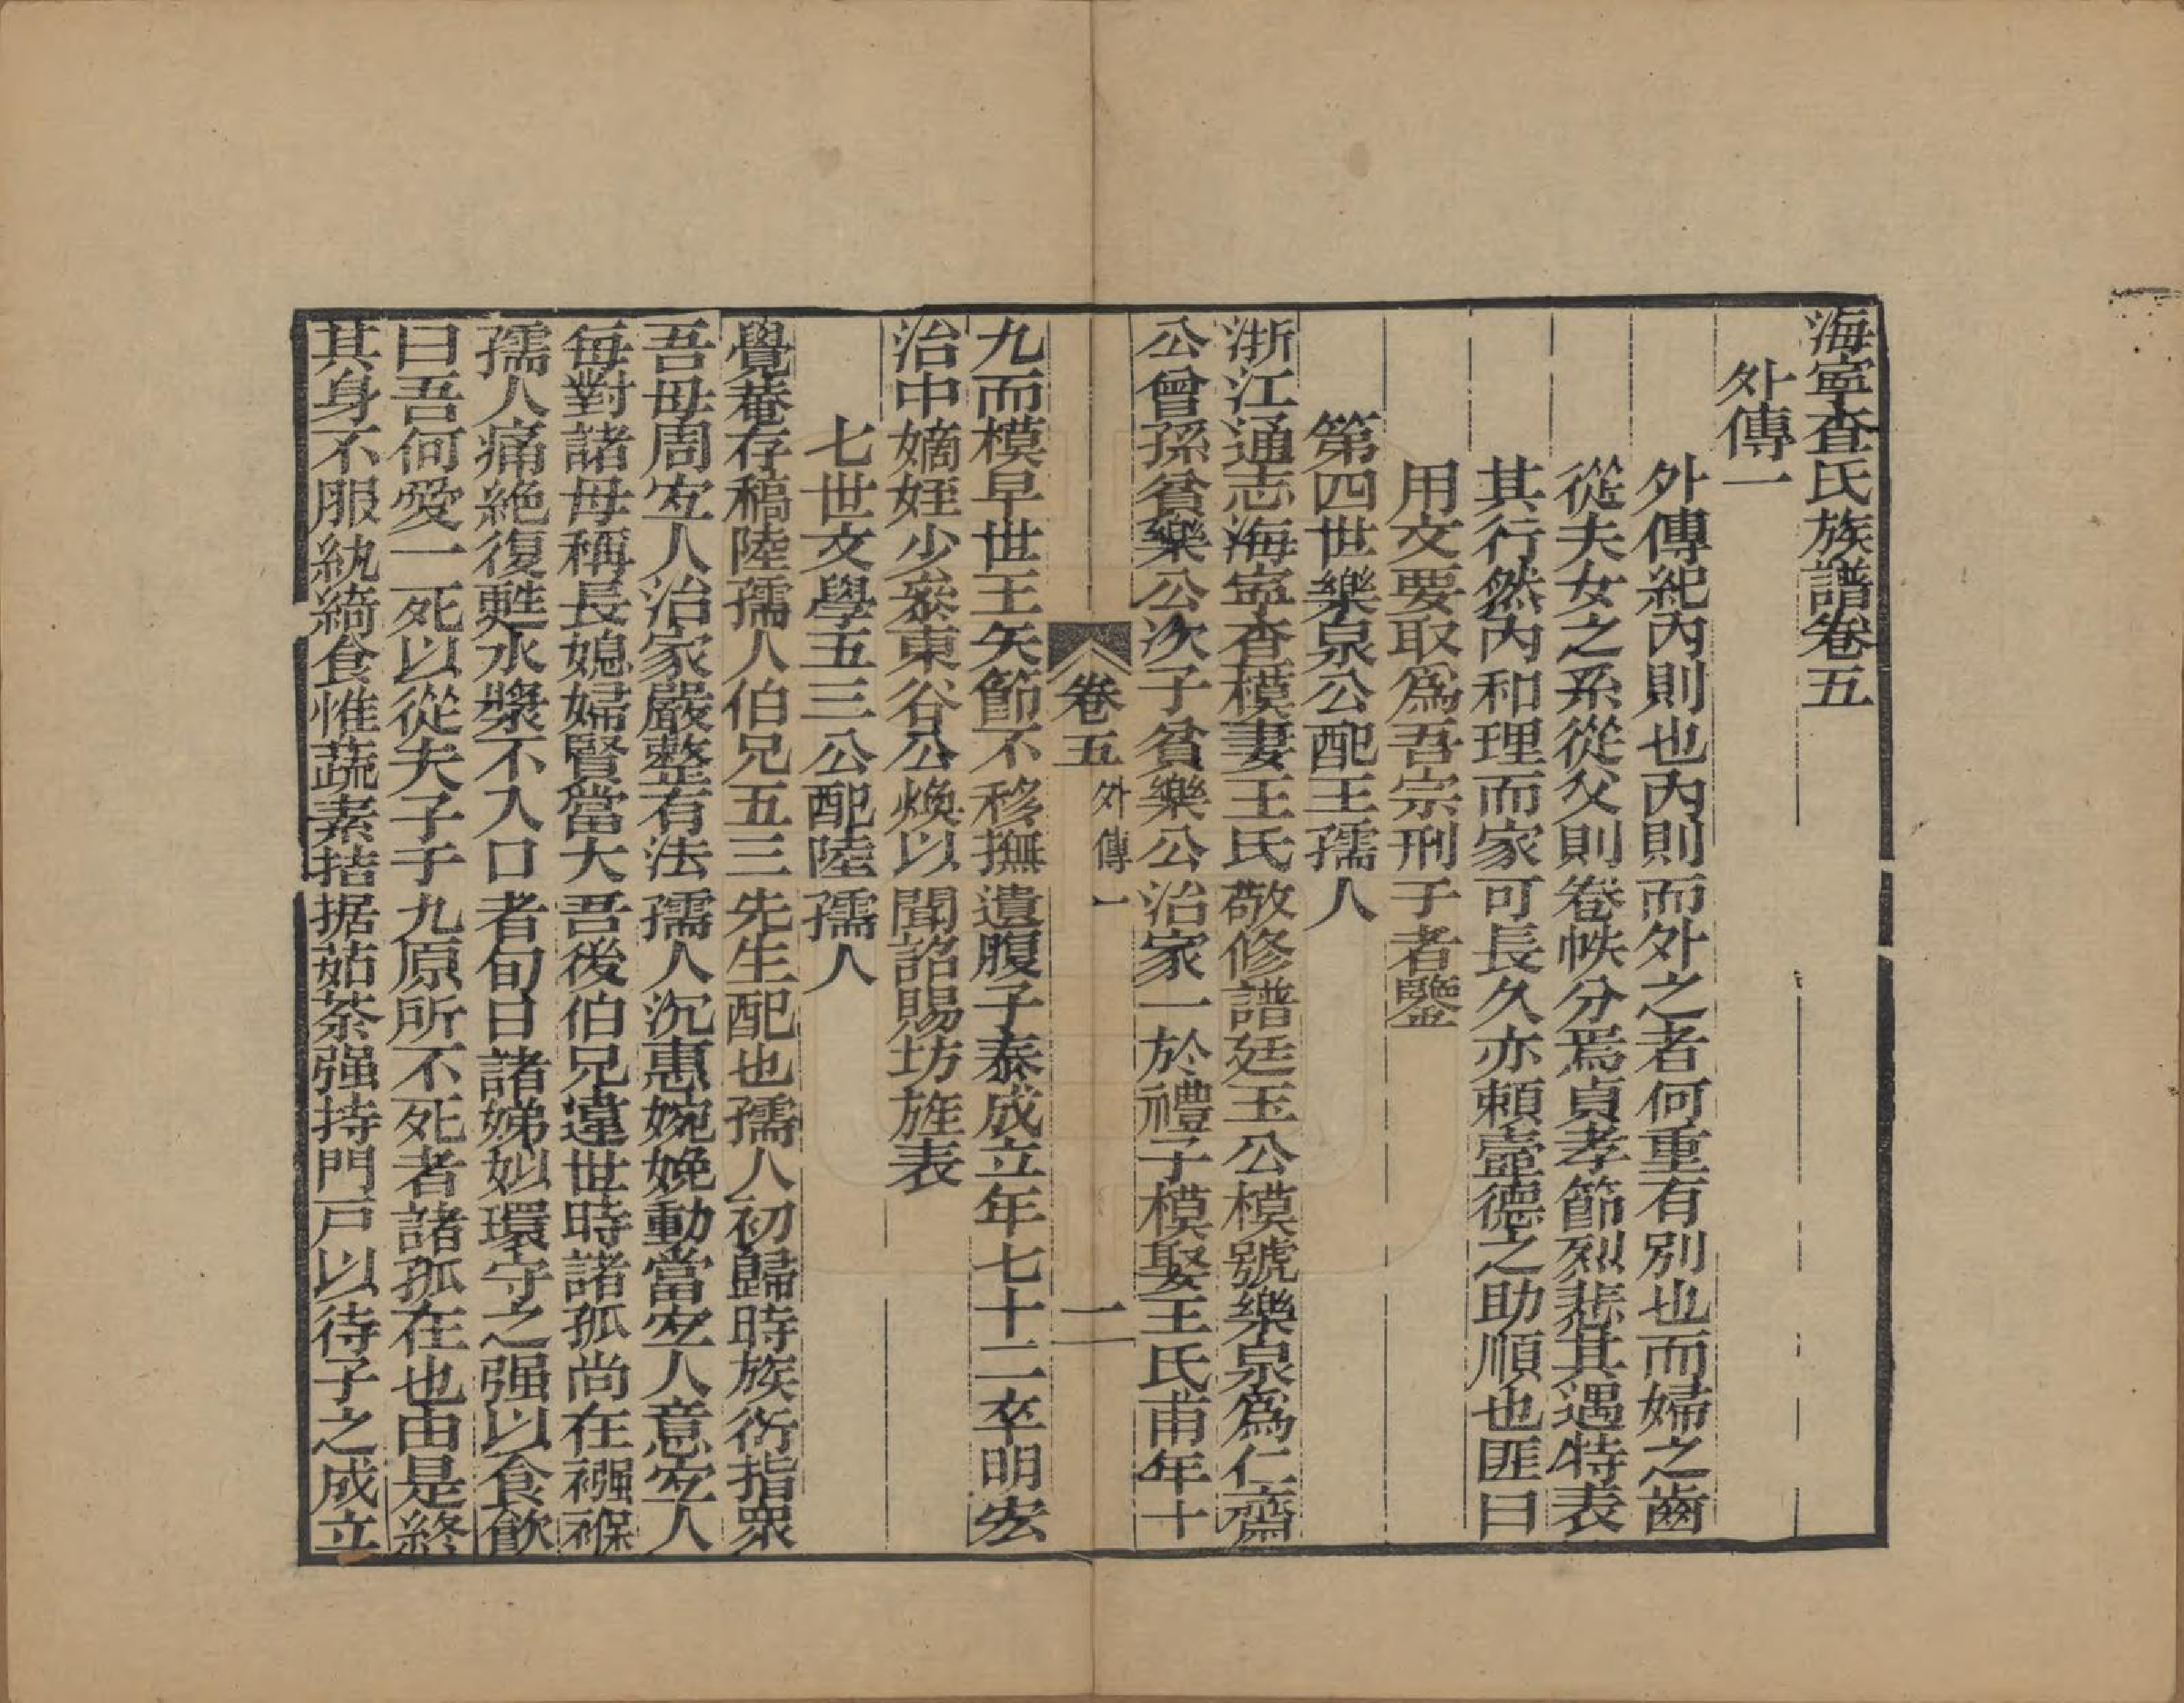 海寧查氏族譜卷五
外傳一
外傳紀內則也內則而外之者何重有別也而婦之齒
從夫女之系從父則卷帙分焉貞孝節烈悲其遇特表
其行然內和理而家可長久亦賴壼德之助順也匪曰
用文要取爲吾宗刑于者鑒
第四世樂泉公配王孺人
浙江通志海寧查模妻王氏敬修譜廷玉公模號樂泉爲仁齋
公曾孫貧樂公次子貧樂公治家一於禮子模娶王氏甫年十
卷五 外傳一 一
九而模早世王矢節不移撫遺腹子泰成立年七十二卒明宏
治中嫡姪少叅東谷公煥以聞詔賜坊旌表
七世文學五三公配陸孺人
覺菴存稿陸孺人伯兄五三先生配也孺人初歸時族衍指衆
吾母周安人治家嚴整有法孺人沉惠婉娩動當安人意安人
每對諸母稱長媳婦賢當大吾後伯兄違世時諸孤尚在襁褓
孺人痛絶復甦水漿不入口者旬日諸娣姒環守之强以食飮
曰吾何愛一死以從夫子于九原所不死者諸孤在也由是終
其身不服紈綺食惟蔬素拮据茹荼强持門戸以待子之成立